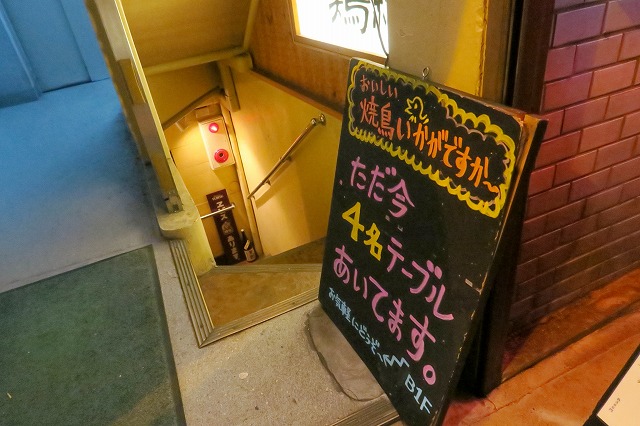 おいしい
焼鳥いかがですか〜
ただ今
4名テーブル
あいてます。
お気軽にどうぞ
B1F